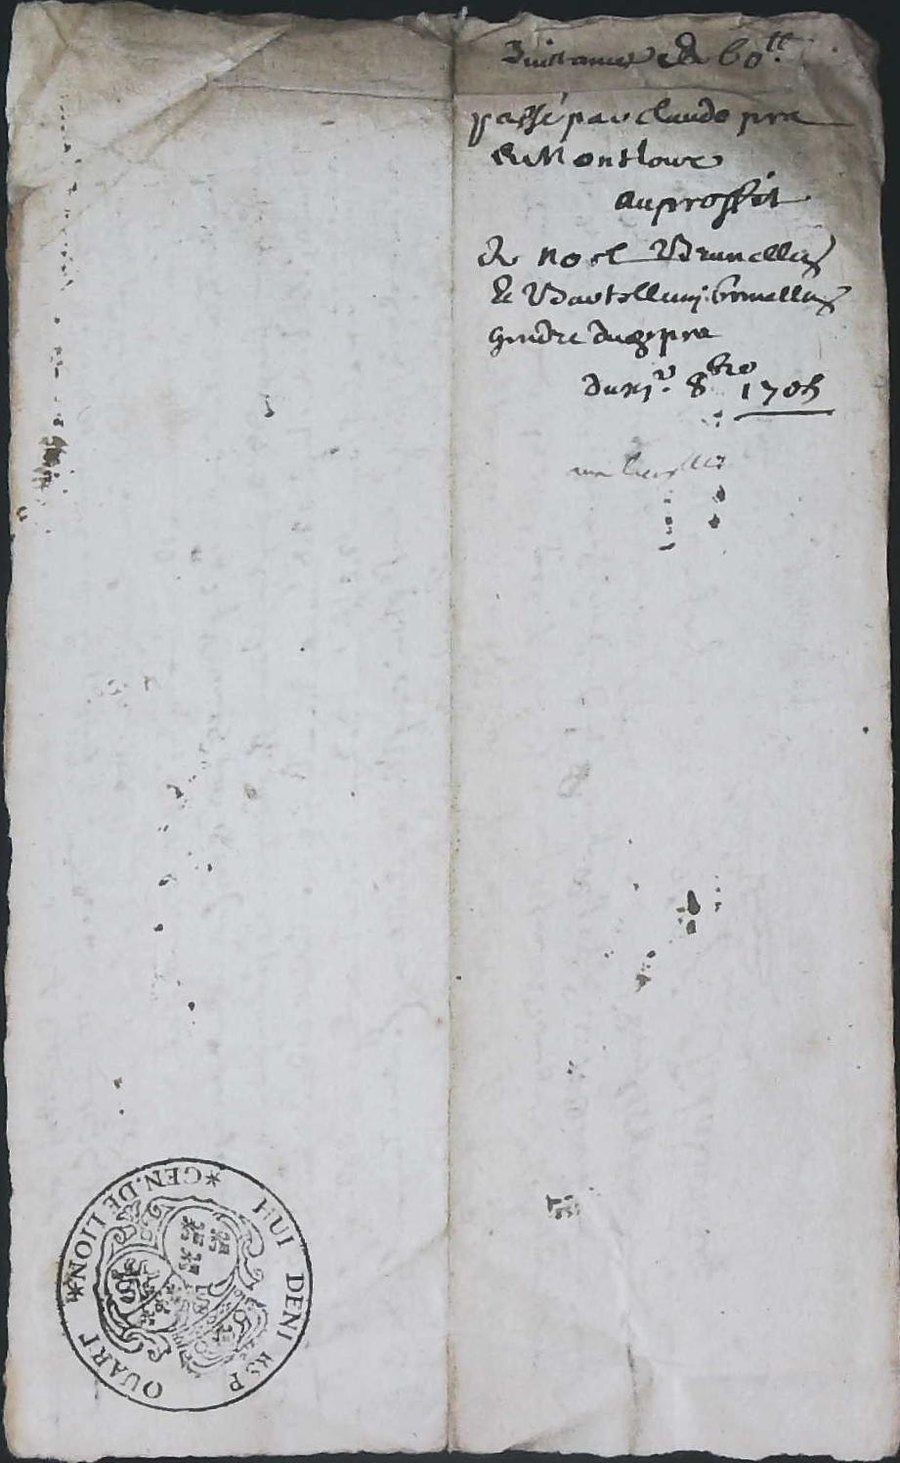 Quittance de 60ll.
passé par claude pra
de Montlouer
au proffit
de noel Brunellus
& Bartellemj brunellus
gendre dud pra
du xjr. 8bre 1705
*GEN.DE LION* QUART HUI DENI RS P